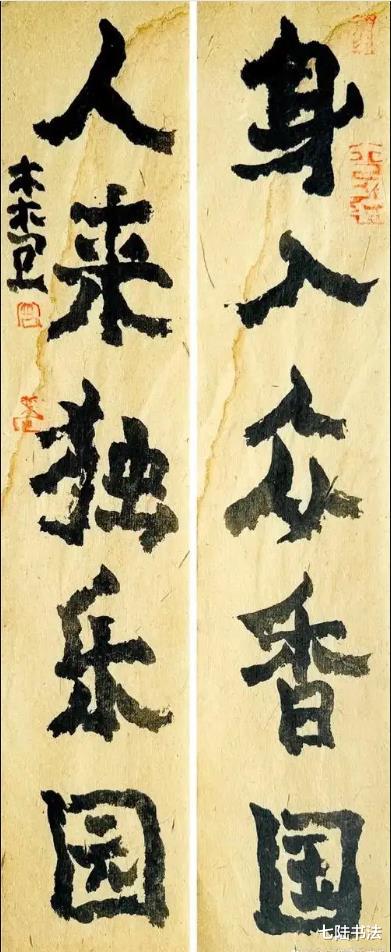 身入众香国
人来独乐园
七陆书法